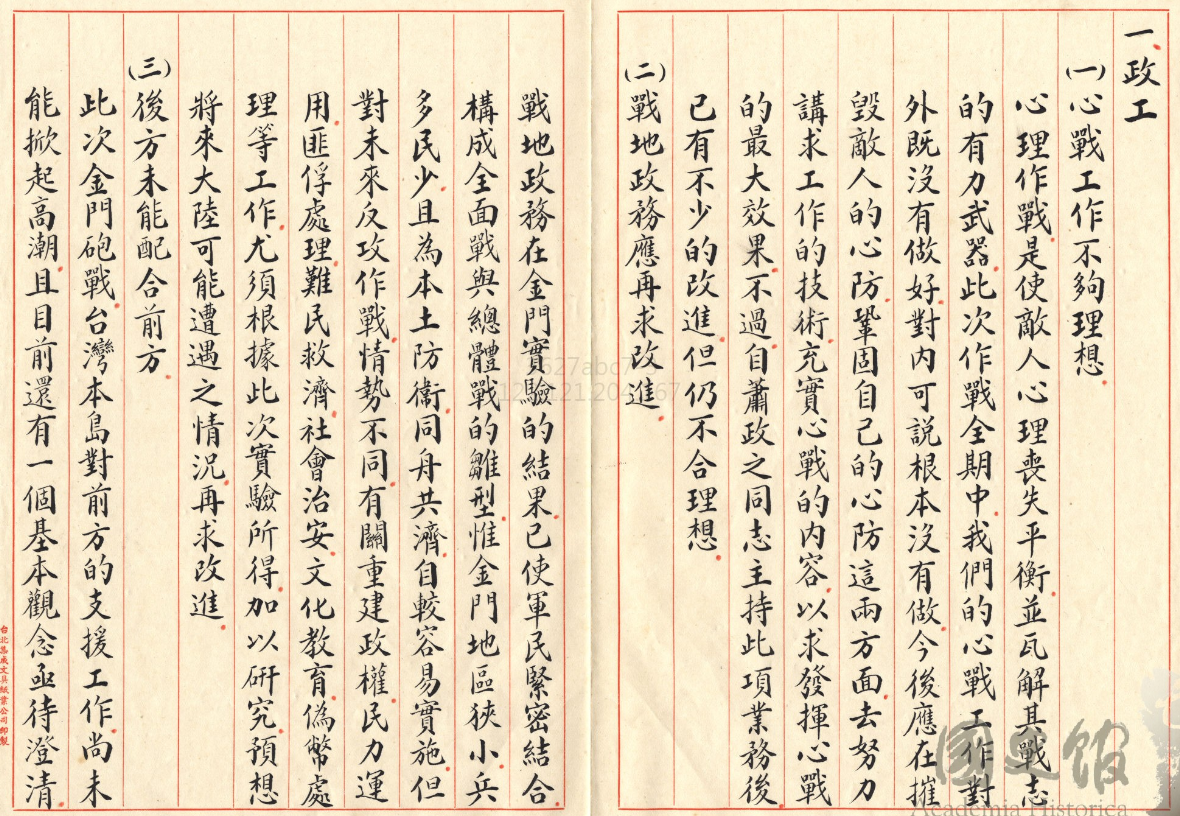 一、政工
(一)心戰工作不夠理想
心理作戰是使敵人心理喪失平衡並瓦解其戰志
的有力武器此次作戰全期中我們的心戰工作對
外既沒有做好對內可説根本沒有做今後應在摧
毀敵人的心防鞏固自己的心防這兩方面去努力
講求工作的技術充實心戰的內容以求發揮心戰
的最大效果不過自蕭政之同志主持此項業務後
已有不少的改進但仍不合理想
(二)戰地政務應再求改進
戰地政務在金門實驗的結果已使軍民緊密結合
構成全面戰與總體戰的雛型惟金門地區狹小兵
多民少且為本土防衛同舟共濟自較容易實施但
對未來反攻作戰情勢不同有關重建政權民力運
用匪俘處理難民救濟社會治安文化教育偽幣處
理等工作尤須根據此次實驗所得加以研究預想
將來大陸可能遭遇之情況再求改進
(三)後方未能配合前方
此次金門砲戰台灣本島對前方的支援工作尚未
能掀起高潮且目前還有一個基本觀念亟待澄清
台北集成文具紙業公司印製
國史館
Academia Historica